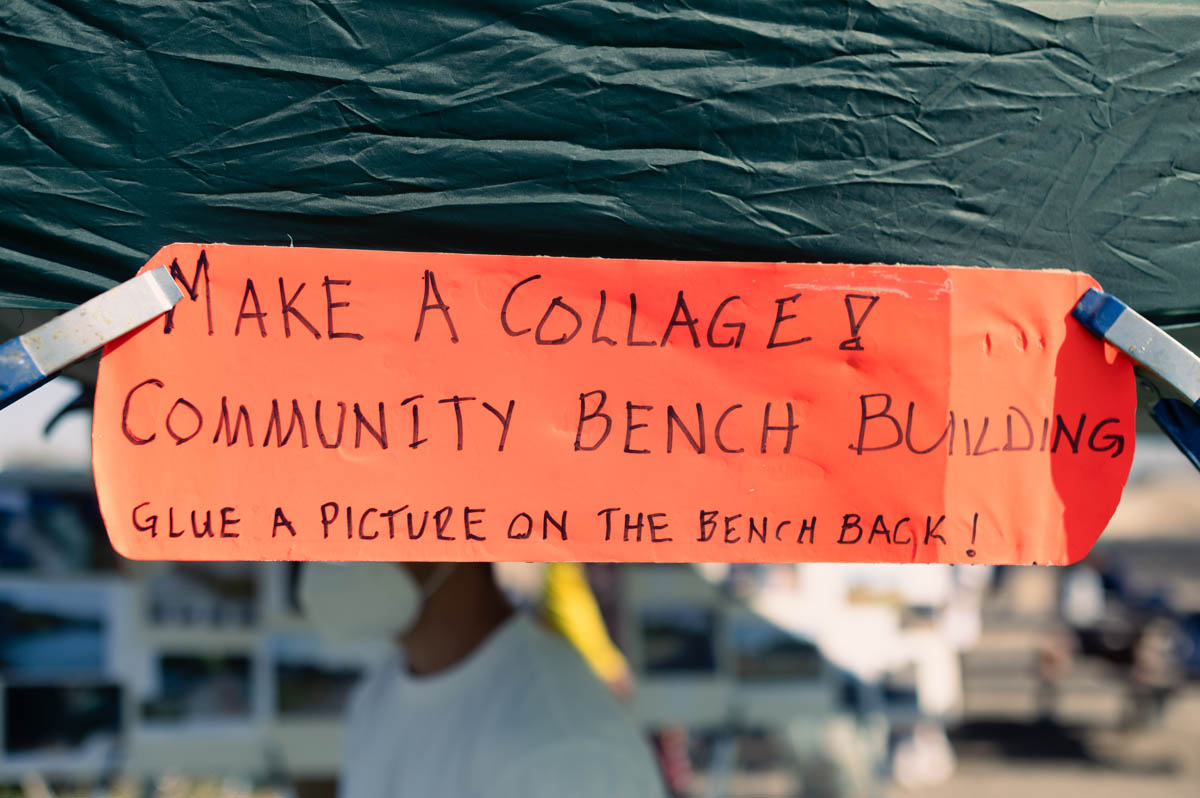 MAKE A COLLAGE!
COMMUNITY BENCH BUILDING
GLUE A PICTURE ON THE BENCH BACK!